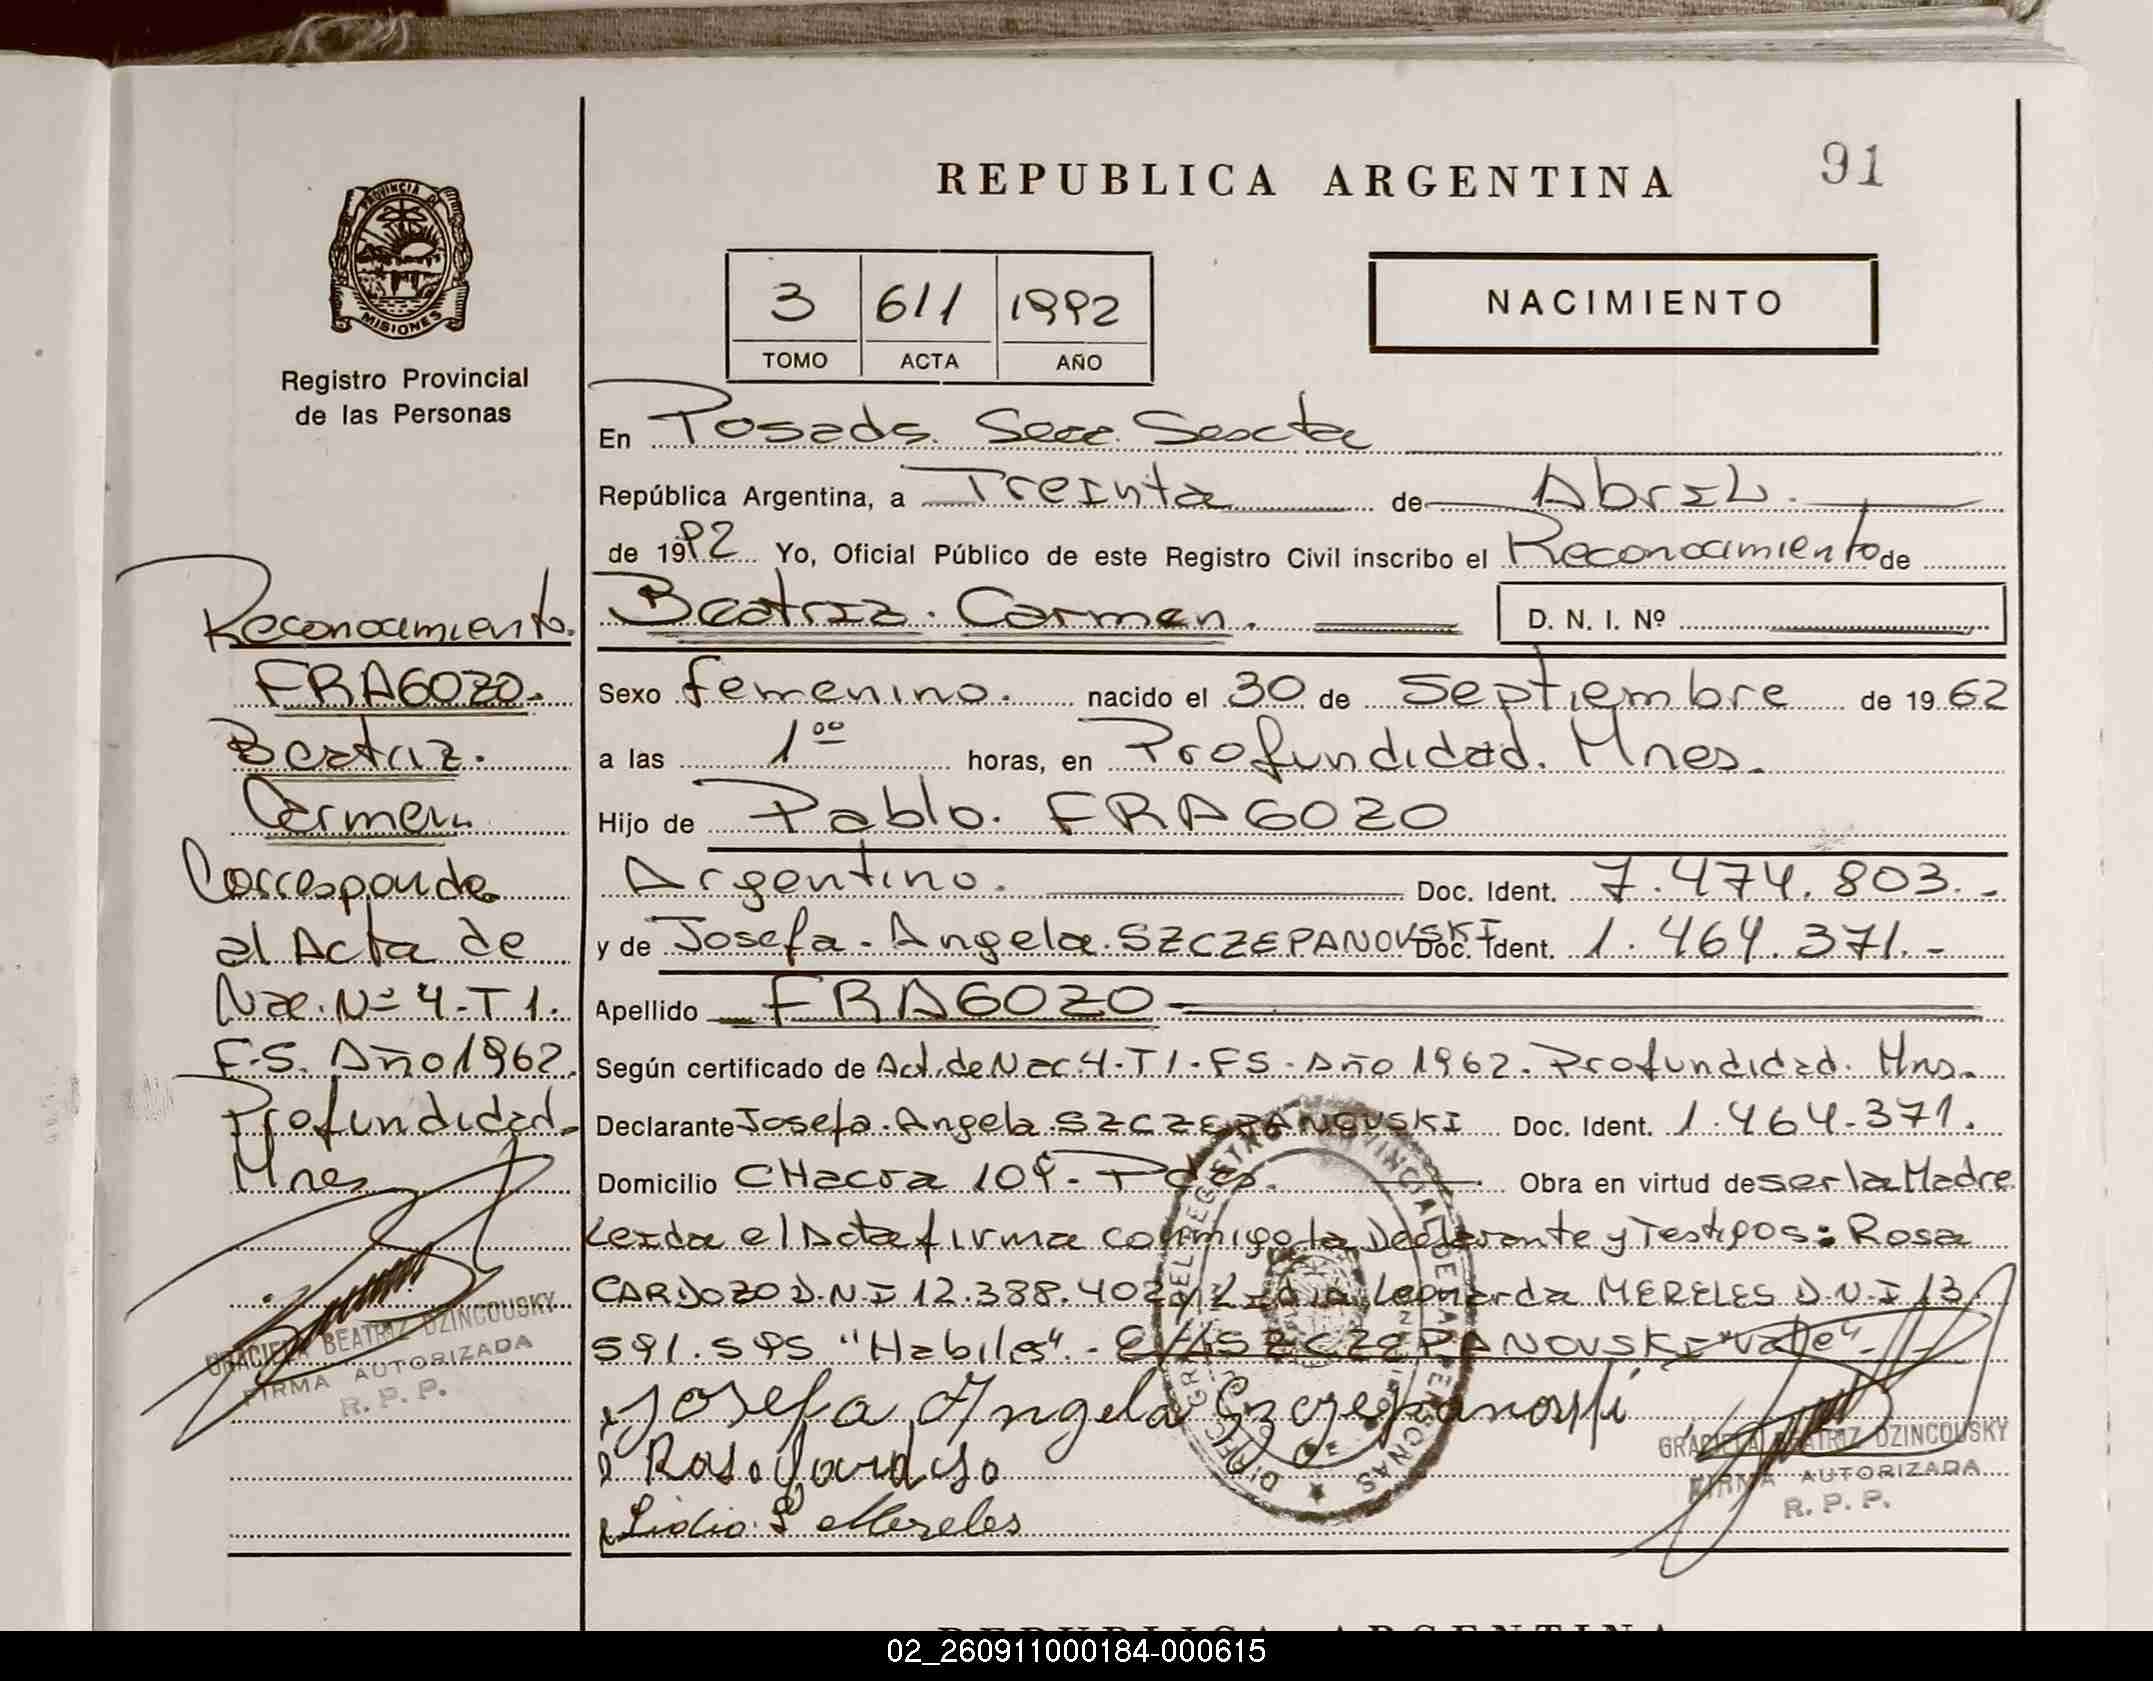 91
REPUBLICA ARGENTINA
PROVINCIA DE
MISIONES
Registro Provincial
de las Personas
3 611 1992
TOMO ACTA AÑO
NACIMIENTO
En Posads. Secc. Sexcta
República Argentina, a Treinta de Abril.
de 1992 Yo, Oficial Público de este Registro Civil inscribo el Reconocimiento de
Beatriz. Carmen. D. N. I. Nº
Sexo femenino. nacido el 30 de Septiembre de 1962
a las 1ºº horas, en Profundidad. Mnes.
Hijo de Pablo. FRAGOZO
Argentino. Doc. Ident. 7.474.803.-
y de Josefa. Angela. SZCZEPANOVSKI Doc. Ident. 1.464.371.-
Apellido FRAGOZO
Según certificado de Act. de Nac 4-T1-FS-Año 1962. Profundidad. Mns.
Declarante Josefa. Angela SZCZEPANOVSKI Doc. Ident. 1.464.371.
Domicilio CHacra 109- Pdas. Obra en virtud de ser la Madre
Leida el Acta firma conmigo la Declarante y Testigos: Rosa
CARDOZO D.N.I 12.388.402 y Lidia Leonarda MERELES D.N.I 13.
591.595 "Habiles".- E/L SZCZEPANOVSKI "Vale".-
Josefa Angela Szczepanovski
Rosa Cardozo
Lidia L Mereles
Reconocimiento.
FRAGOZO.
Beatriz.
Carmen.
Corresponde
al Acta de
Nac. Nº 4-T1.
F-S. Año 1962.
Profundidad.
Mnes
GRACIELA BEATRIZ DZINCOUSKY
FIRMA AUTORIZADA
R. P. P.
GRACIELA BEATRIZ DZINCOUSKY
FIRMA AUTORIZADA
R. P. P.
REPUBLICA ARGENTINA
02_260911000184-000615